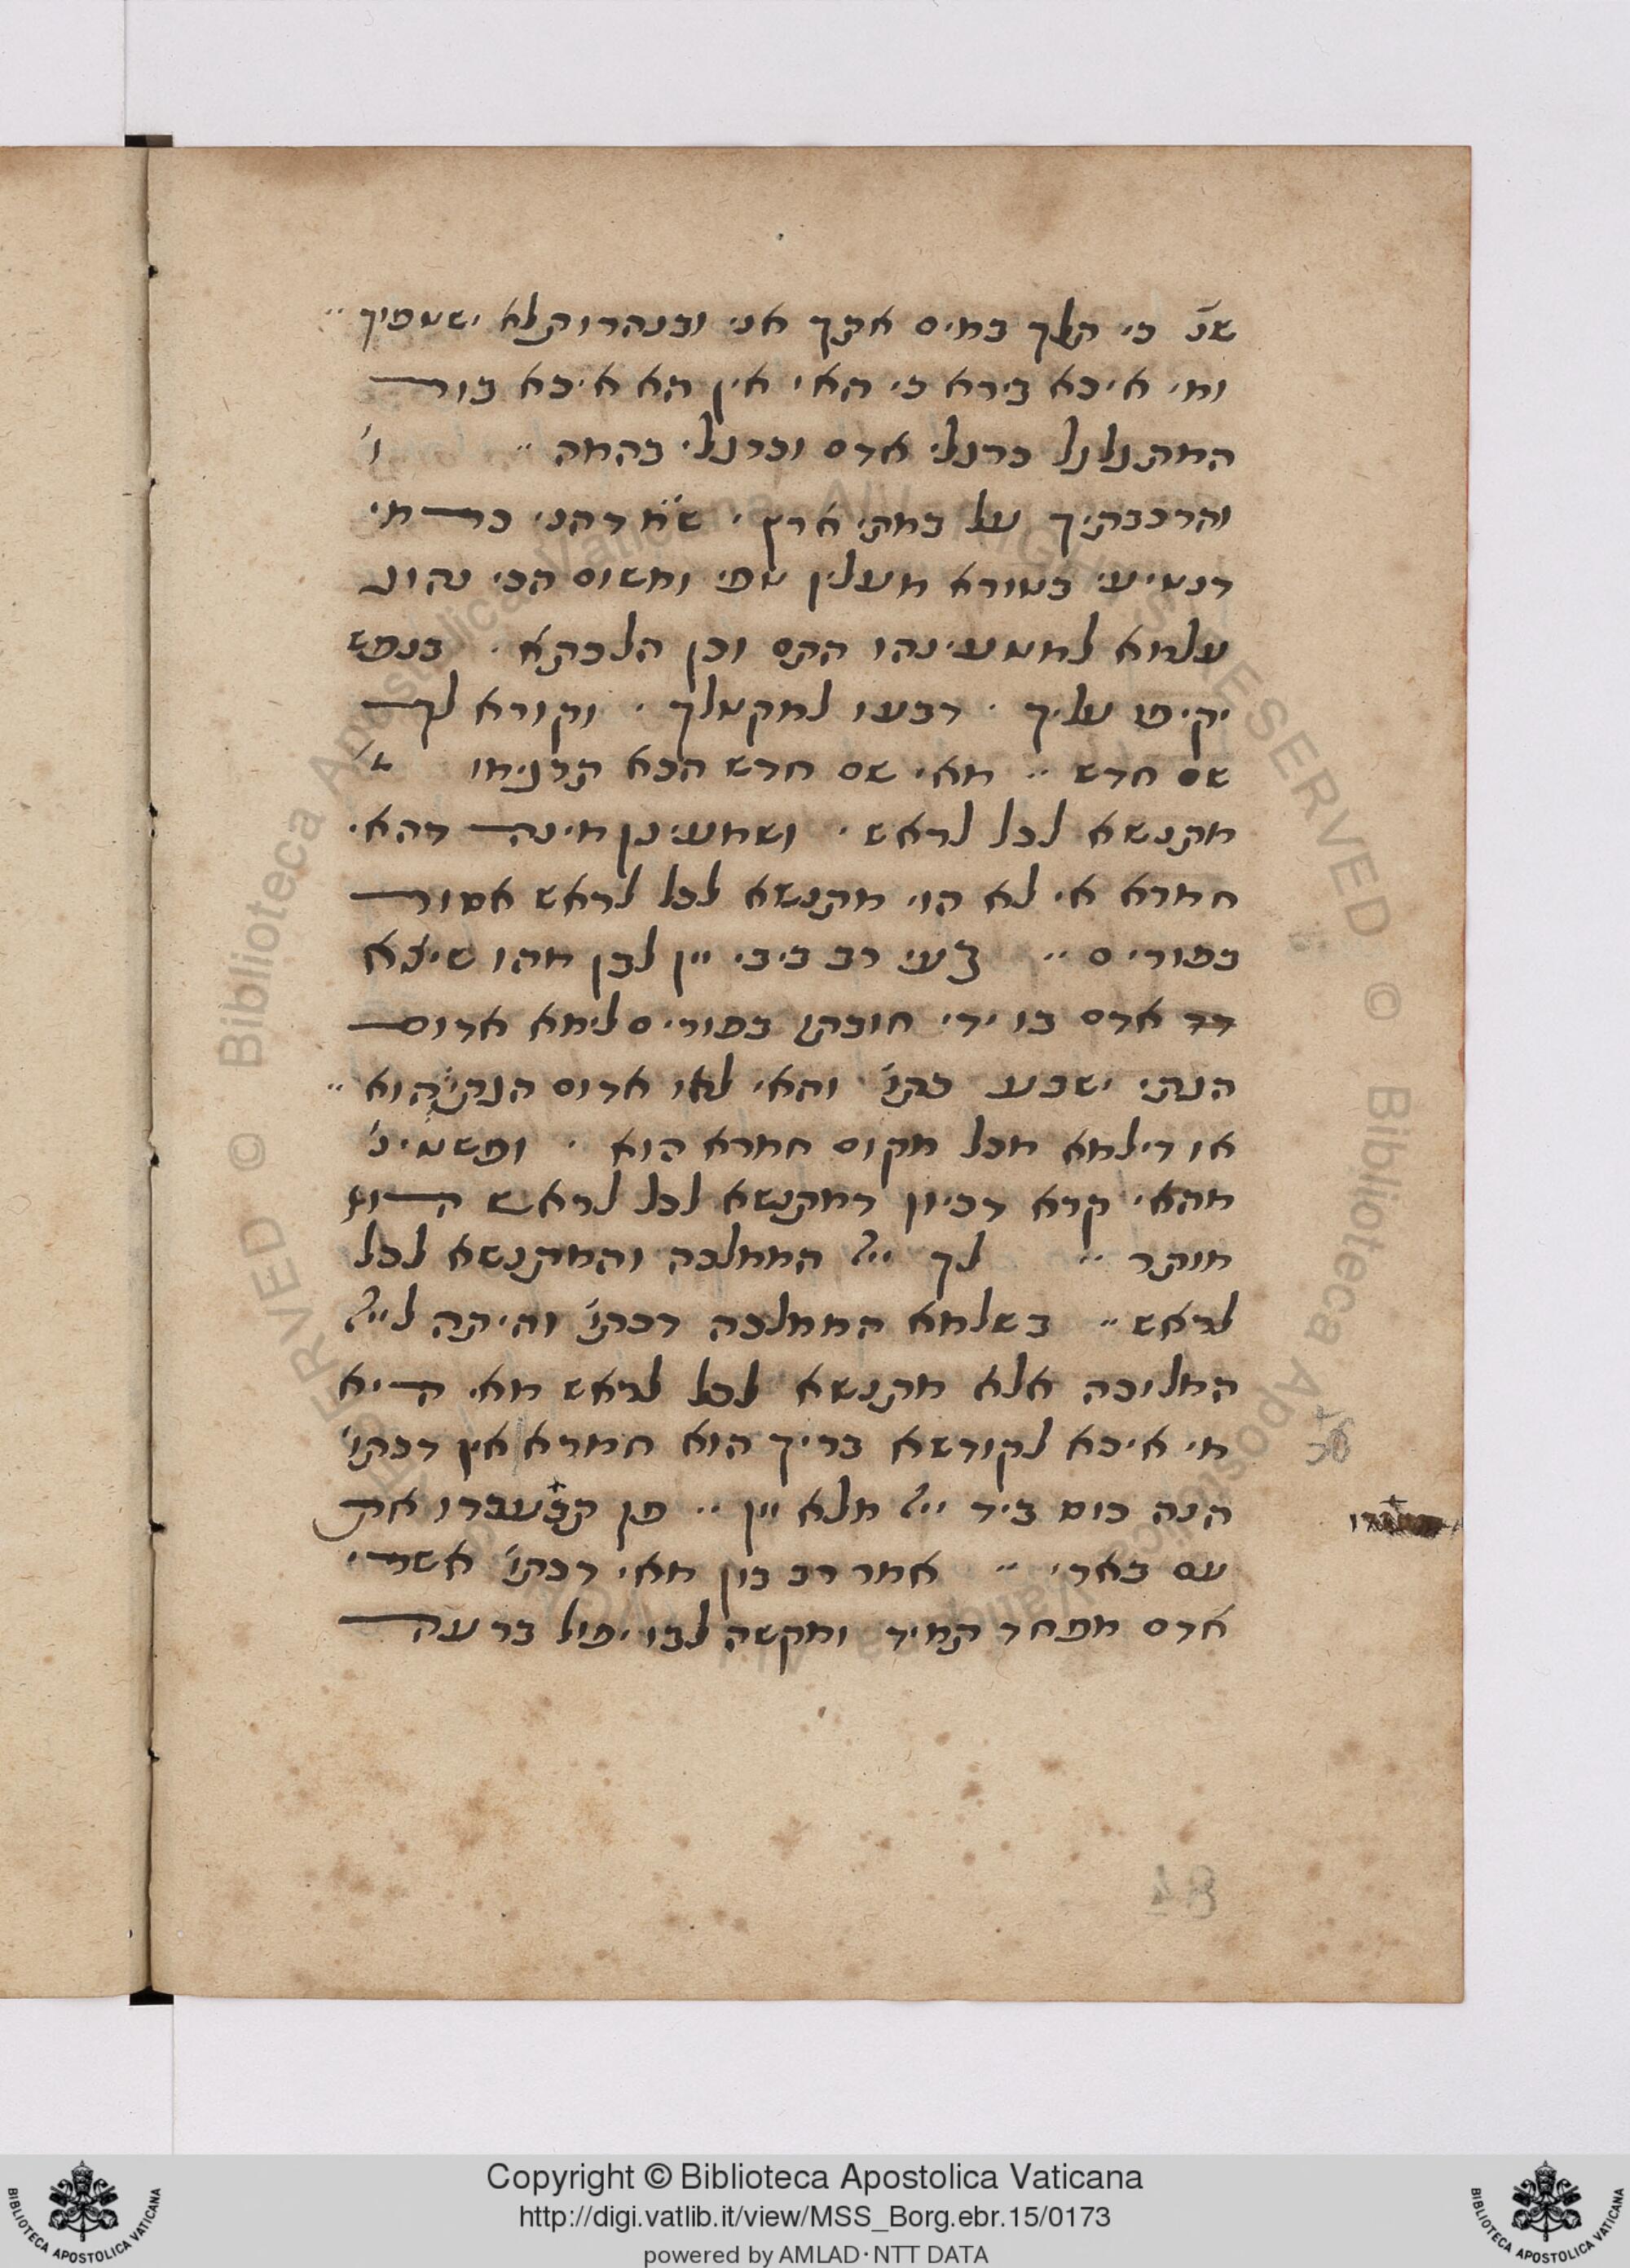 שנ' כי תלך במים אתך אני ובנהרות לא ישטפוך ..
ומי איכא בירא כי האי אין הא איכא בור
המתגלגל כרגלי אדם וכרגלי בהמה .. ו'
והרכבתיך על במתי ארץ . ש"מ דהני כר מי
דנטיעי בטורא מעלין טפי ומשום הכי נהוג
עלמא למטעינהו התם וכן הלכתא . בנפש
יקיפו עליך . דבעו למקטלך . וקורא לך
שם חדש .. מאי שם חדש הכא תרגימו א'
מתנשא לכל לראש . ושמעינן מינה דהאי
חמרא אי לא הוי מתנשא לכל לראש אסור
בפורים .. בעי רב ביבי יין לבן מהו שיצא
דר אדם בו ידי חובתו בפורים לימא אדום
הנתי ישבע כתי' והאי לאו אדום הנתי' הוא ..
או דילמא מכל מקום חמרא הוא . ופשטינ'
מהאי קרא דכיון דמתנשא לכל לראש הוי
מותר .. לך ייי המלכה והמתנשא לכל
לראש .. בשלמא הממלכה דכתי' והיתה לייי
המלוכה אלא מתנשא לכל לראש מאי היא
מי איכא לקודשא בריך הוא חמרא אין דכתי'
הנה כוס ביד ייי מלא יין .. פן תבעברו את
עם בארי .. אמר רב כון מאי דכתי' אשרי
אדם מפחד תמיד ומקשה לבו יפול ברעה
84
Copyright © Biblioteca Apostolica Vaticana
http://digi.vatlib.it/view/MSS_Borg.ebr.15/0173
powered by AMLAD·NTT DATA